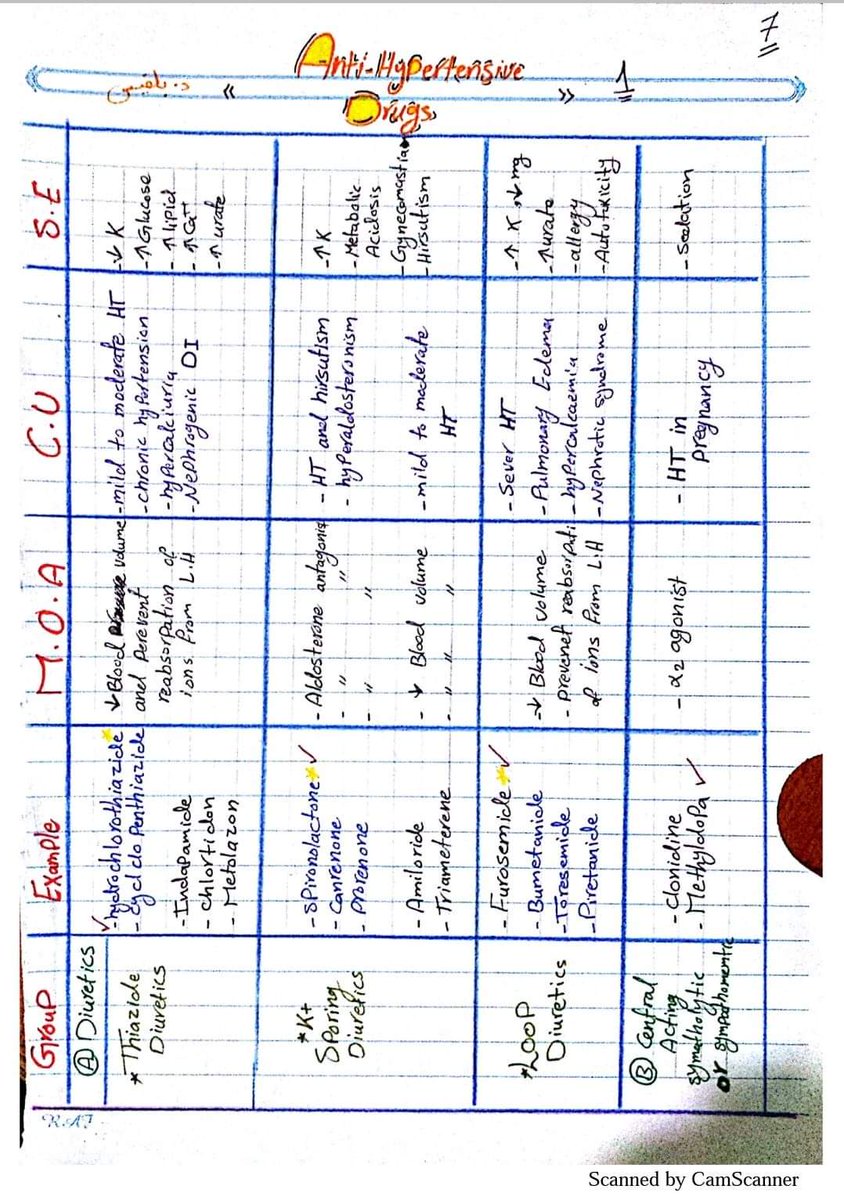 7
Anti-Hypertensive
Drugs
1
Group
Example
M.O.A
C.U
S.E
Ⓐ Diuretics
* Thiazide
Diuretics
✓ - hydrochlorothiazide *
- cyclo Penthiazide
- Indapamide
- chlortidon
- Metolazon
↓ Blood volume
and perevent
reabsorpation of
ions from L.H
- mild to moderate HT
- chronic hypertension
- hypercalciuria
- Nephrogenic DI
- ↓ K
- ↑ Glucose
- ↑ lipid
- ↑ Ca++
- ↑ urate
* K+
Sparing
Diuretics
- Spironolactone * ✓
- Canrenone
- Prorenone
- Amiloride
- Triameterene
- Aldosterone antagonis
- " "
- " "
- ↓ Blood volume
- " " "
- HT and hirsutism
- hyperaldosteronism
- mild to moderate
HT
- ↑ K
- Metabolic
Acidosis
- Gynecomastia
- Hirsutism
* LOOP
Diuretics
- Furosemide * ✓
- Bumetanide
- Toresemide
- Piretanide
- ↓ Blood volume
- prevenet reabsorpati
of ions from L.H
- Sever HT
- Pulmonary Edema
- hypercalcaemia
- Nephrotic syndrome
- ↑ K ↓ mg
- ↑ urate
- allergy
- Autotoxicity
Ⓑ Central
Acting
symatholytic
or sympathomemtic
- Clonidine
- Methyldopa ✓
- α2 agonist
- HT in
pregnancy
- Sedation
Scanned by CamScanner